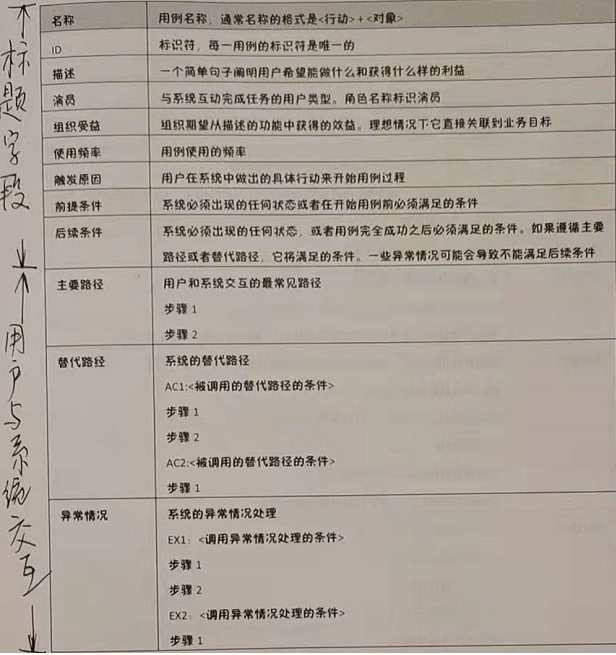 标题字段
用户与系统交互
名称 用例名称，通常名称的格式是<行动>+<对象>
ID 标识符，每一用例的标识符是唯一的
描述 一个简单句子阐明用户希望能做什么和获得什么样的利益
演员 与系统互动完成任务的用户类型。角色名称标识演员
组织受益 组织期望从描述的功能中获得的效益。理想情况下它直接关联到业务目标
使用频率 用例使用的频率
触发原因 用户在系统中做出的具体行动来开始用例过程
前提条件 系统必须出现的任何状态或者在开始用例前必须满足的条件
后续条件 系统必须出现的任何状态，或者用例完全成功之后必须满足的条件。如果遵循主要
路径或者替代路径，它将满足的条件。一些异常情况可能会导致不能满足后续条件
主要路径 用户和系统交互的最常见路径
步骤 1
步骤 2
替代路经 系统的替代路径
AC1:<被调用的替代路径的条件>
步骤 1
步骤 2
AC2:<被调用的替代路径的条件>
步骤 1
异常情况 系统的异常情况处理
EX1：<调用异常情况处理的条件>
步骤 1
步骤 2
EX2：<调用异常情况处理的条件>
步骤 1